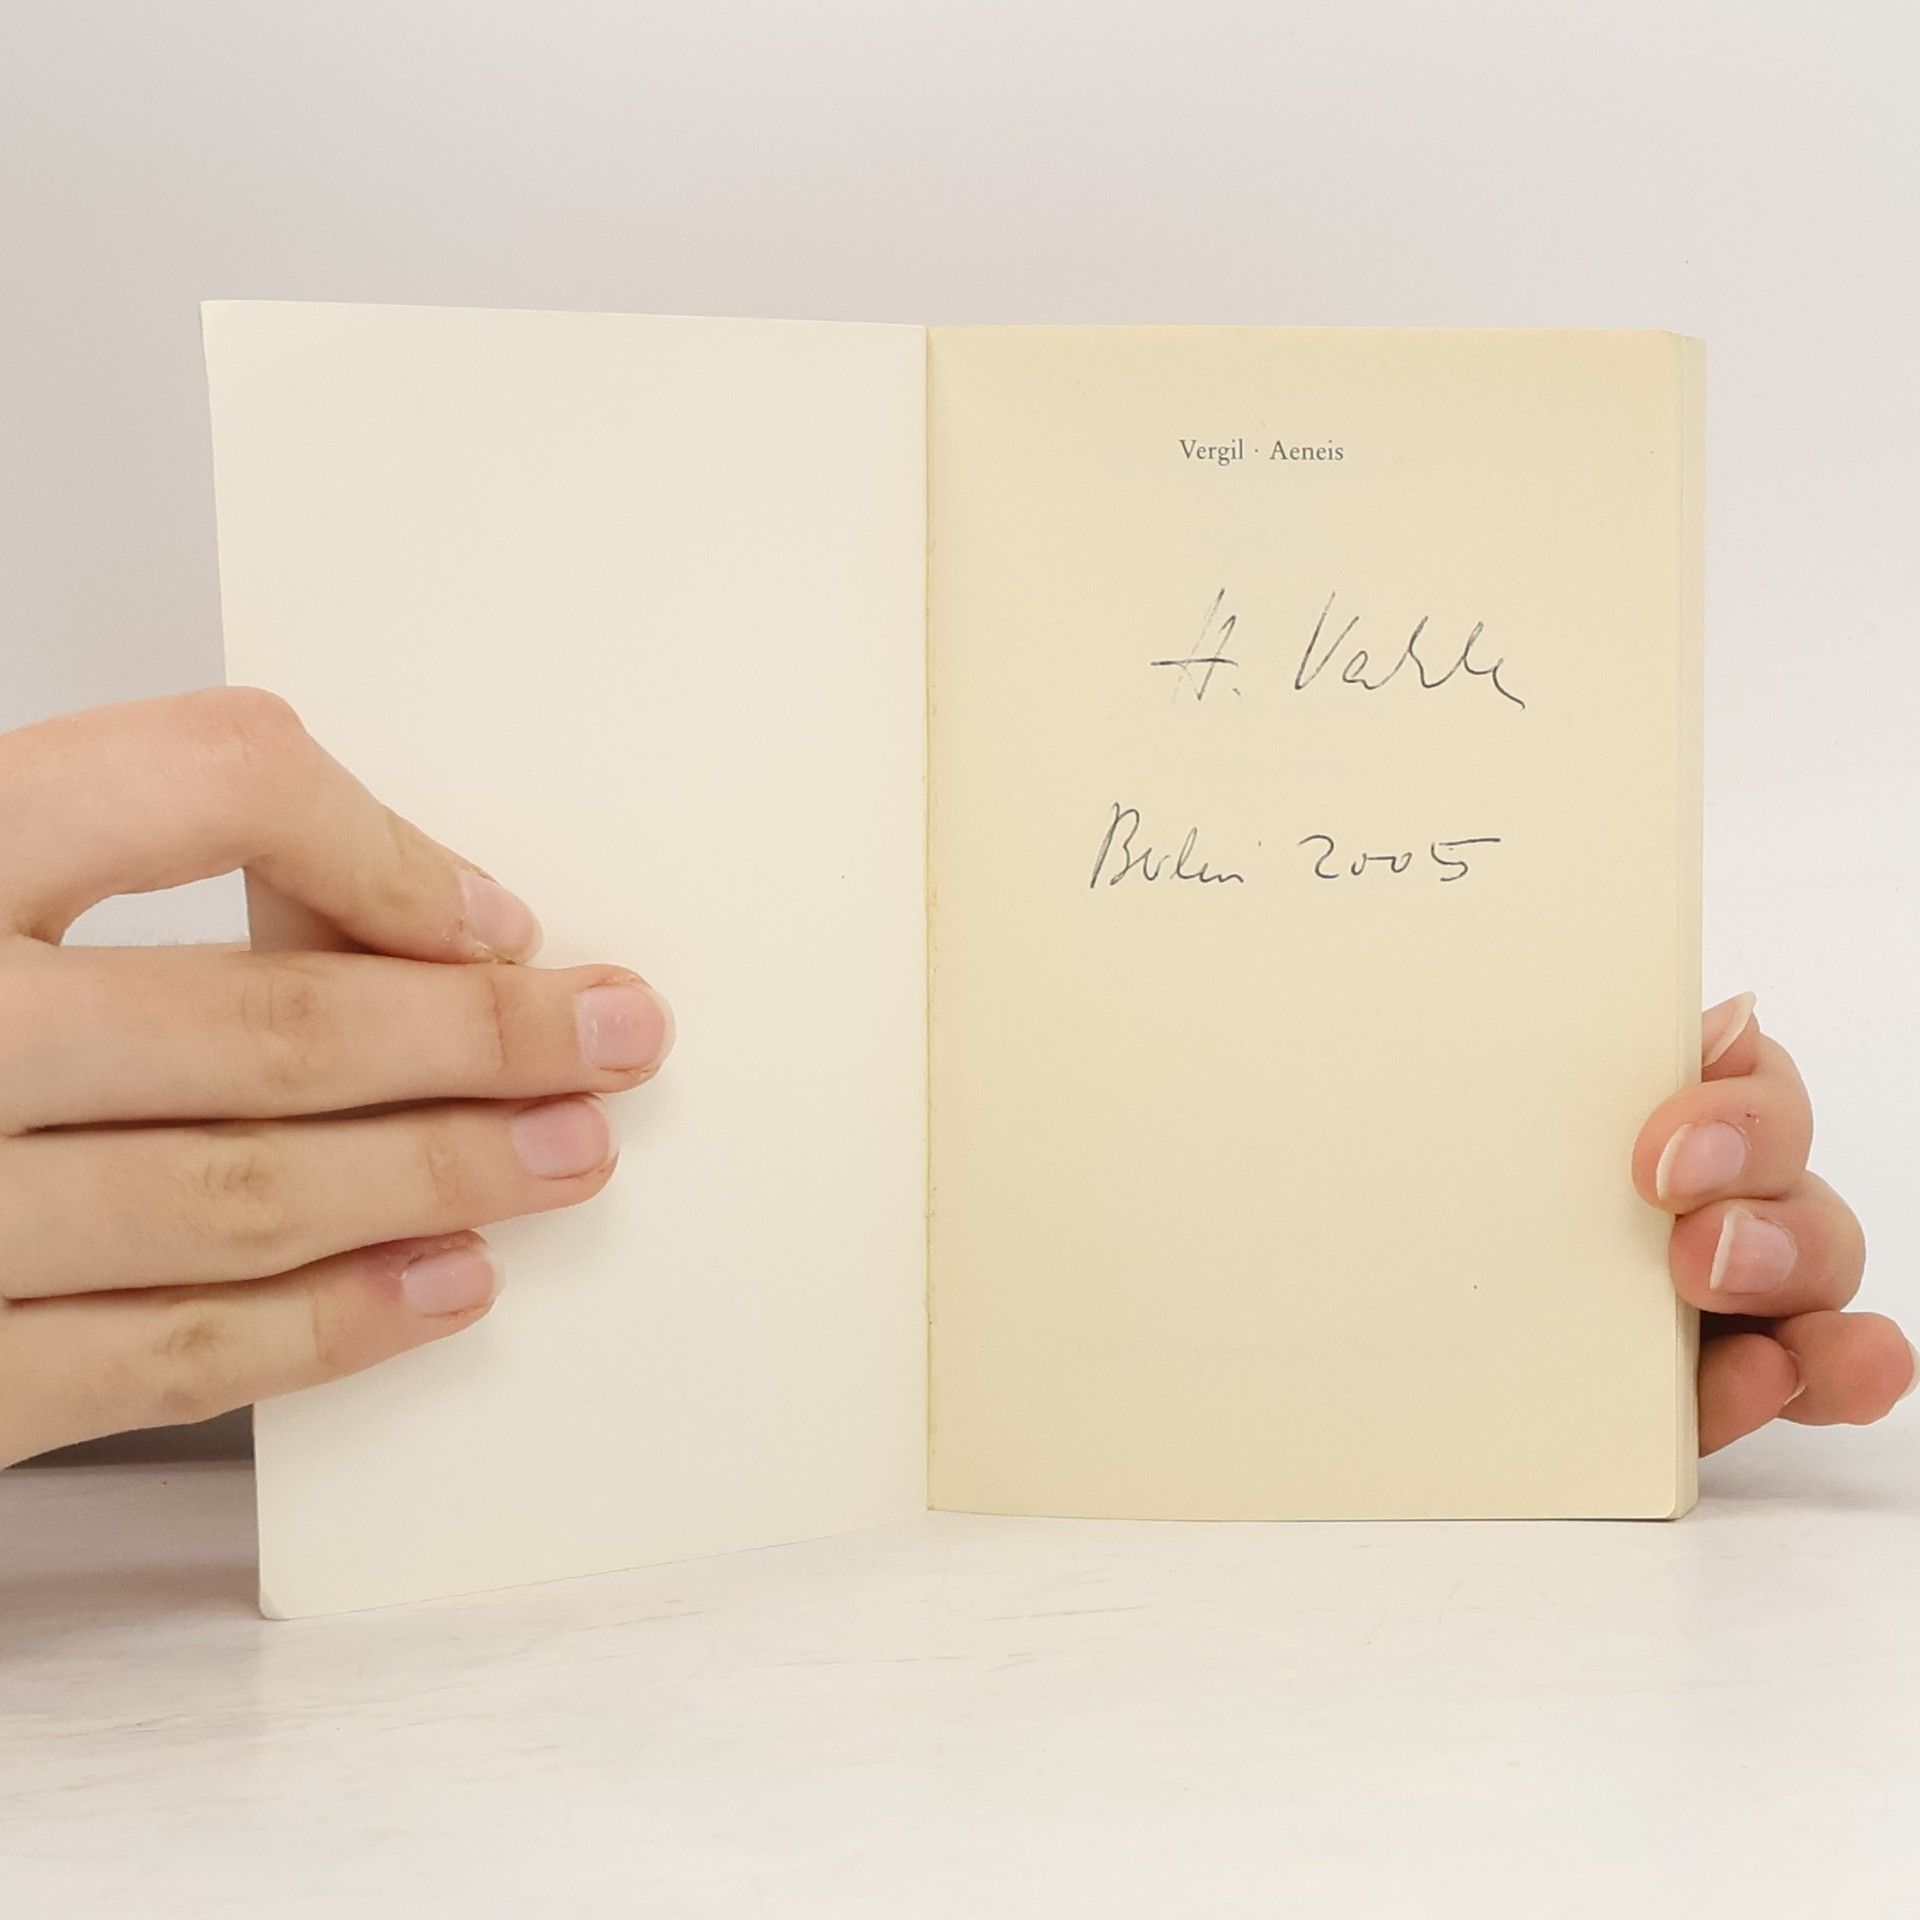 Vergil · Aeneis
H. Vahle
Berlin 2005